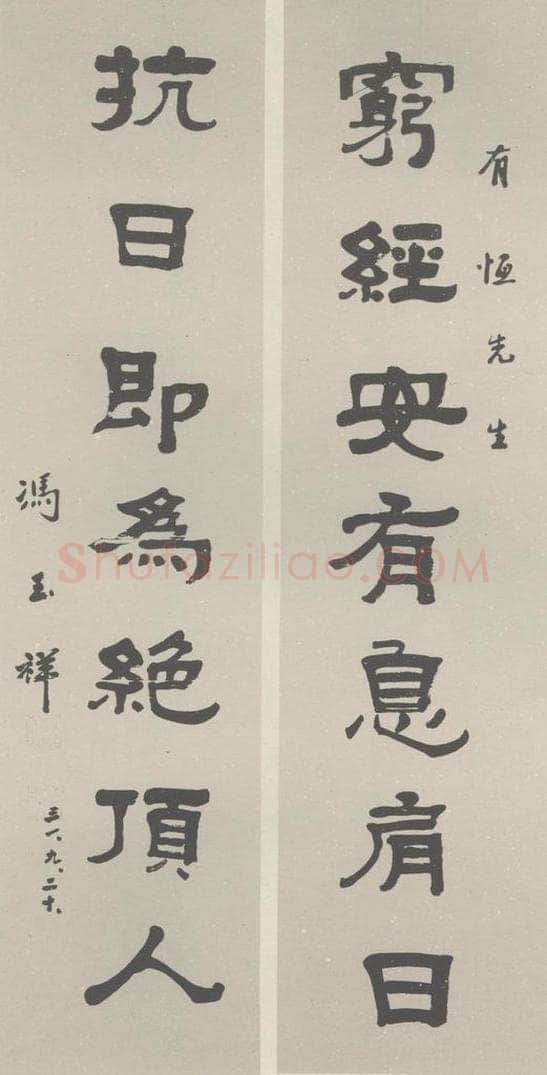 有恒先生
窮經安有息肩日
抗日即為絕頂人
馮玉祥
三一、九、二十、
Shufaziliao.COM